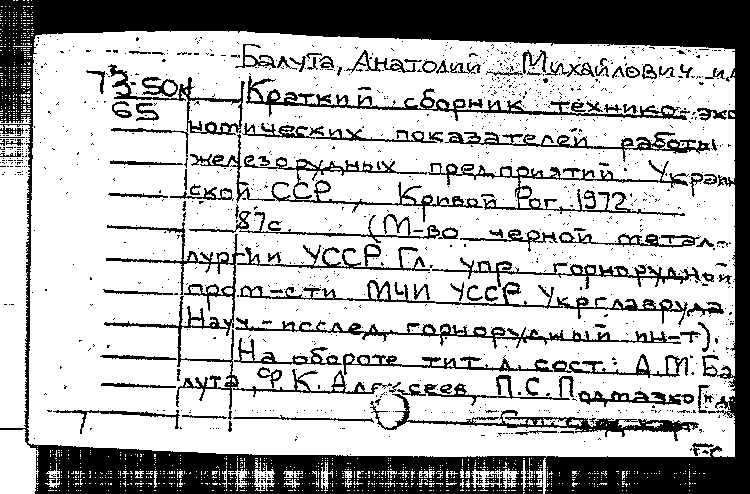 Балута, Анатолий Михайлович и
73-50К Краткий сборник технико-эко
65
номических показателей работы
железорудных предприятий Украин
ской ССР., Кривой Рог, 1972.
87с. (М-во черной метал-
лургии УССР. Гл. упр. горнорудной
пром-сти МЧМ УССР. Укрглавруда.
Науч.-исслед. горнорудный ин-т).
На обороте тит. л. сост.: А.М. Ба
лута, Ф.К. Алексеев, П.С. Подмазко
См. след. карт.